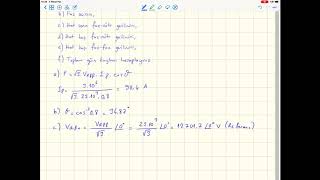 b) Faz açısını,
c) Hat sonu faz-nötr gerilimini,
d) Hat başı faz-nötr gerilimini,
e) Hat başı faz-faz gerilimini,
f) Toplam güç kaybını hesaplayınız.
a) P = √3. V_HPP. I_R. cos φ
I_R = 3.10⁶ / √3. 22.10³. 0,8 = 98.4 A
b) φ = cos⁻¹ 0,8 = 36.87°
c) V_RPn = V_RPP / √3 ∠0° = 22.10³ / √3 ∠0° = 12701.7 ∠0° V